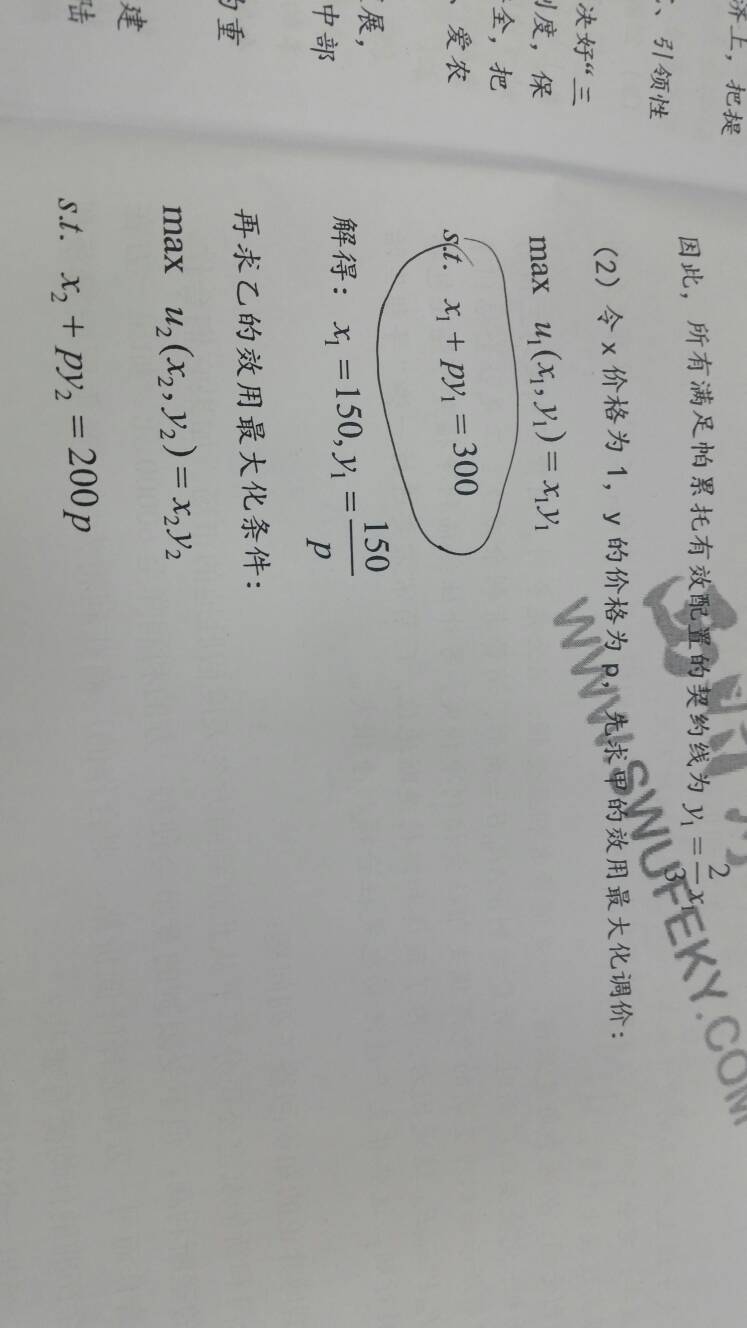 济上，把提
、引领性
决好“三
制度，保
全，把
、爱农
展，
中部
的重
建
因此，所有满足帕累托有效配置的契约线为 y₁ = 2/3 x₁
（2）令 x 价格为 1，y 的价格为 p，先求甲的效用最大化调价：
max u₁(x₁, y₁) = x₁y₁
s.t. x₁ + py₁ = 300
解得：x₁ = 150, y₁ = 150/p
再求乙的效用最大化条件：
max u₂(x₂, y₂) = x₂y₂
s.t. x₂ + py₂ = 200p
WWW.SWUFEKY.COM